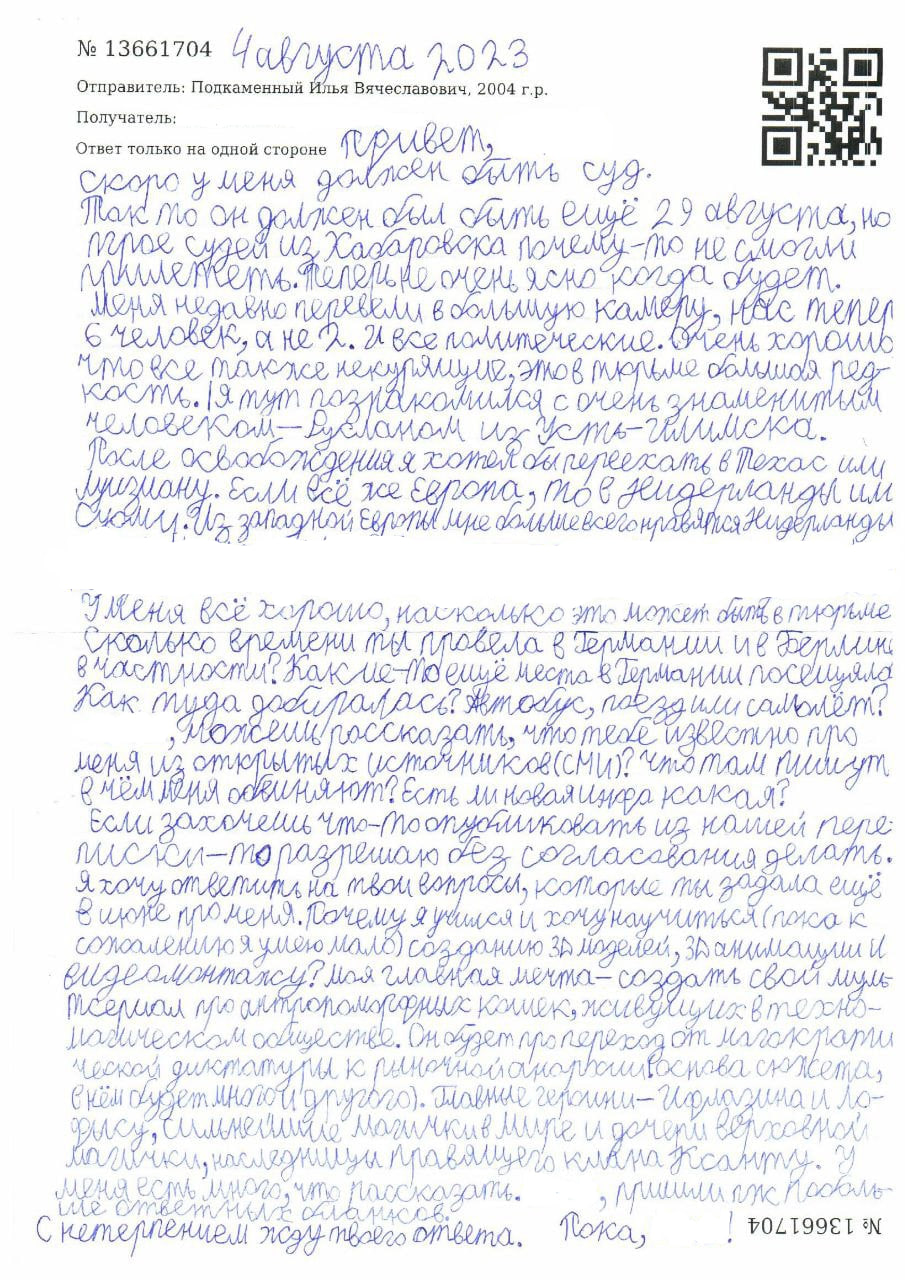 № 13661704 4 августа 2023
Отправитель: Подкаменный Илья Вячеславович, 2004 г.р.
Получатель:
Ответ только на одной стороне Привет,
скоро у меня должен быть суд.
Так то он должен был быть ещё 29 августа, но
трое судей из Хабаровска почему-то не смогли
прилететь. Теперь не очень ясно когда будет.
Меня недавно перевели в большую камеру, нас тепер
6 человек, а не 2. И все политические. Очень хорошо
что все также некурящие, это в тюрьме большая ред-
кость. Я тут познакомился с очень знаменитым
человеком — Русланом из Усть-Илимска.
После освобождения я хотел бы переехать в Техас или
Луизиану. Если всё же Европа, то в Нидерланды или
Из западной Европы мне больше всего нравятся Нидерланды
У меня всё хорошо, насколько это может быть в тюрьме
Сколько времени ты провела в Германии и в Берлине
в частности? Какие-то ещё места в Германии посещала
Как туда добиралась? Автобус, поезд или самолёт?
, можешь рассказать, что тебе известно про
меня из открытых источников (СМИ)? Что там пишут
в чём меня обвиняют? Есть ли новая инфа какая?
Если захочешь что-то опубликовать из нашей пере-
писки — то разрешаю без согласования делать.
Я хочу ответить на твои вопросы, которые ты задала ещё
в июне про меня. Почему я учился и хочу научиться (пока к
сожалению я умею мало) созданию 3D моделей, 3D анимации и
видеомонтажу? Моя главная мечта — создать свой муль-
тсериал про антропоморфных кошек, живущих в техно-
магическом обществе. Он будет про переход от магократи
ческой диктатуры к рыночной анархии (основа сюжета,
в нём будет много и другого). Главные героини — и Ло-
фису, сильнейшие магички в мире и дочери верховной
магички, наследницы правящего клана Ксанту. У
меня есть много, что рассказать. , пришли пж поболь-
ше ответных бланков.
С нетерпением жду твоего ответа. Пока, !
№ 13661704